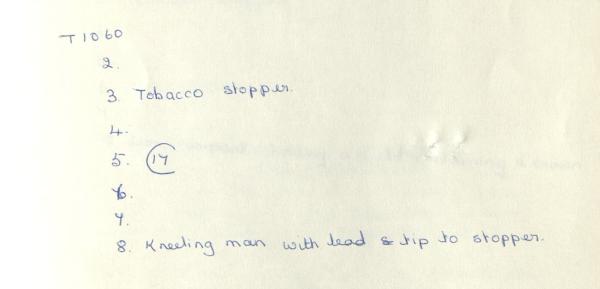 T1060
2.
3. Tobacco stopper.
4.
5. 17
6.
7.
8. Kneeling man with lead & tip to stopper.